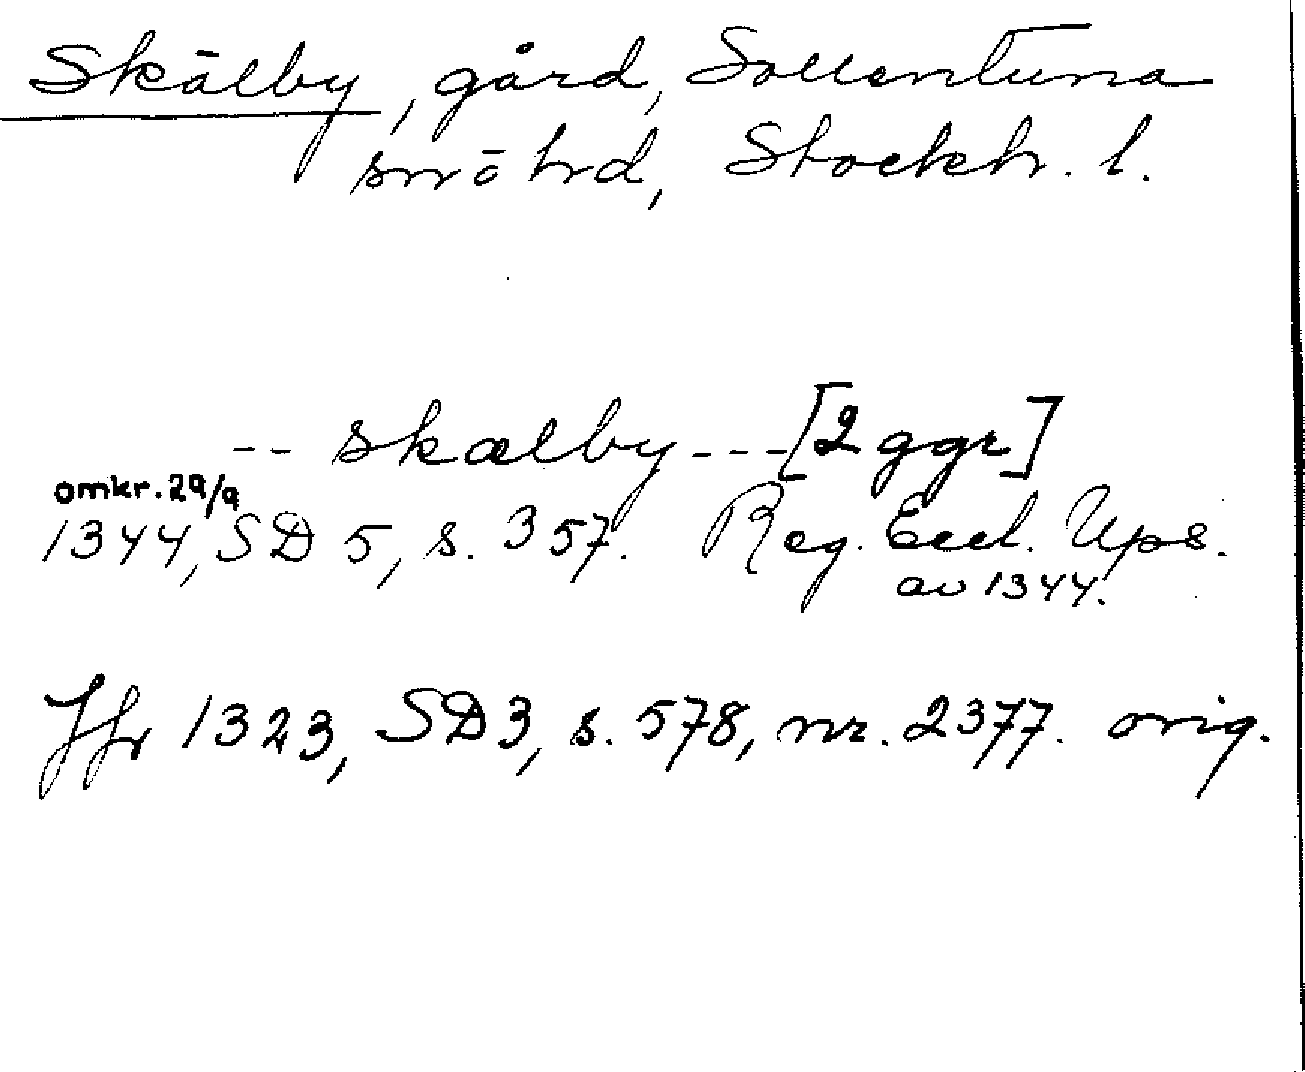 Skälby, gård, Sollentuna
sn ö hrd, Stockh. l.
-- skælby --- [2 ggr]
omkr. 29/9
1344, SD 5, s. 357. Reg. Eccl. Ups.
av 1344.
Jfr 1323, SD3, s. 578, nr. 2377. orig.